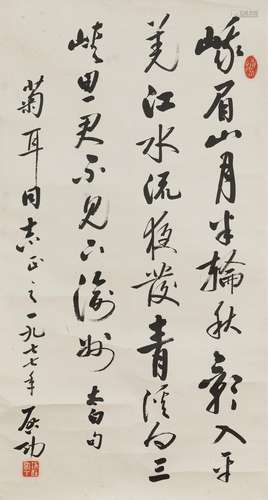 峨眉山月半輪秋影入平
羌江水流夜發青溪向三
峽思君不見下渝州 太白句
菊耳同志正之 一九七七年 启功